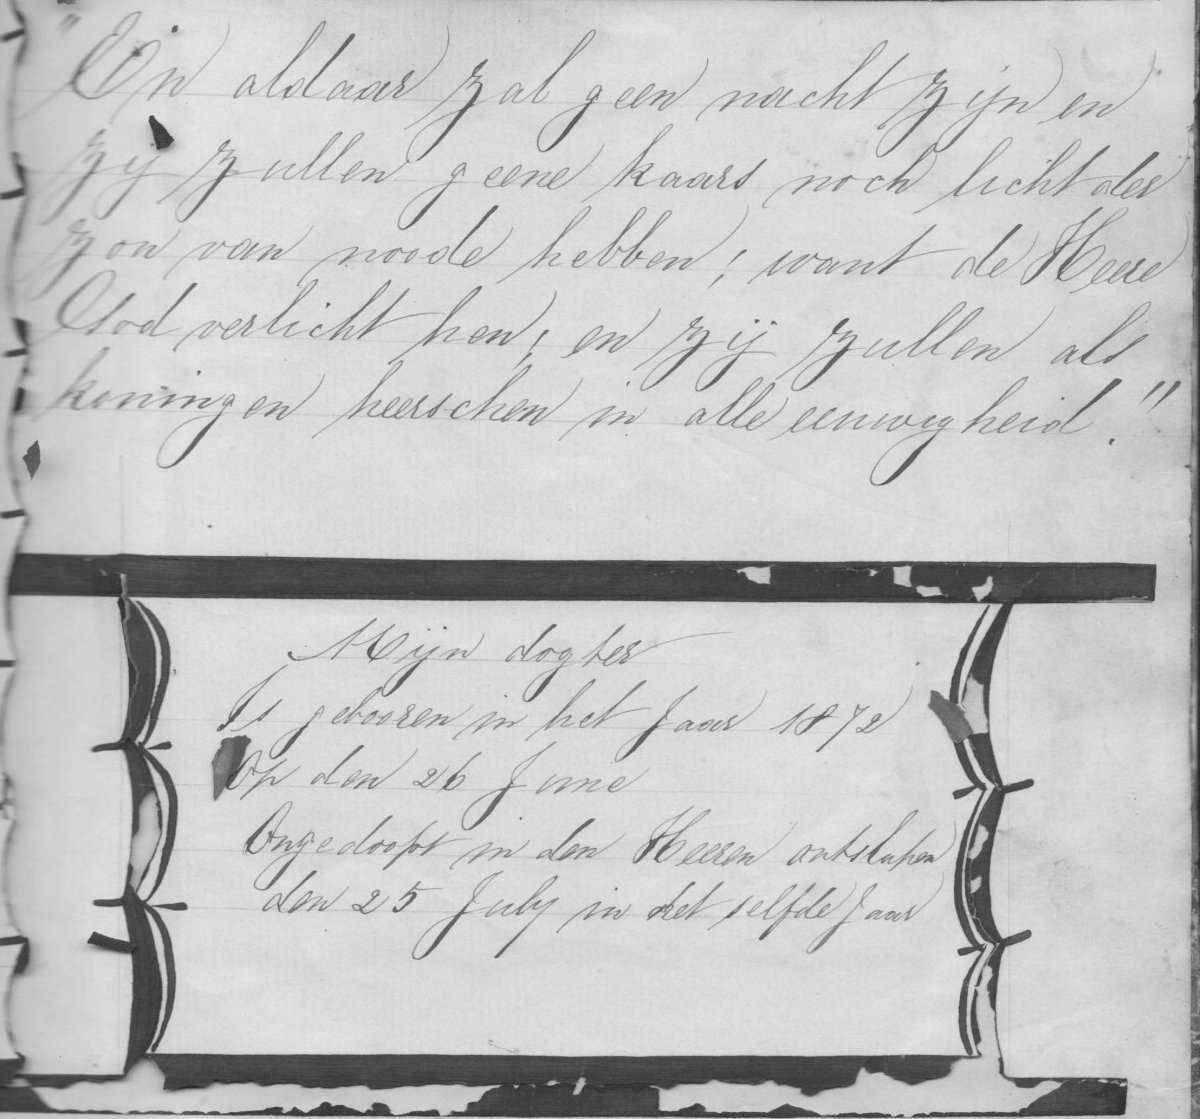 "En aldaar zal geen nacht zijn en
zij zullen geene kaars noch licht der
zon van noode hebben; want de Heere
God verlicht hen; en zij zullen als
koningen heerschen in alle eeuwigheid."
Mijn dogter
Is gebooren in het Jaar 1872
Op den 26 June
Ongedoopt in den Heeren ontslapen
den 25 July in het selfde Jaar